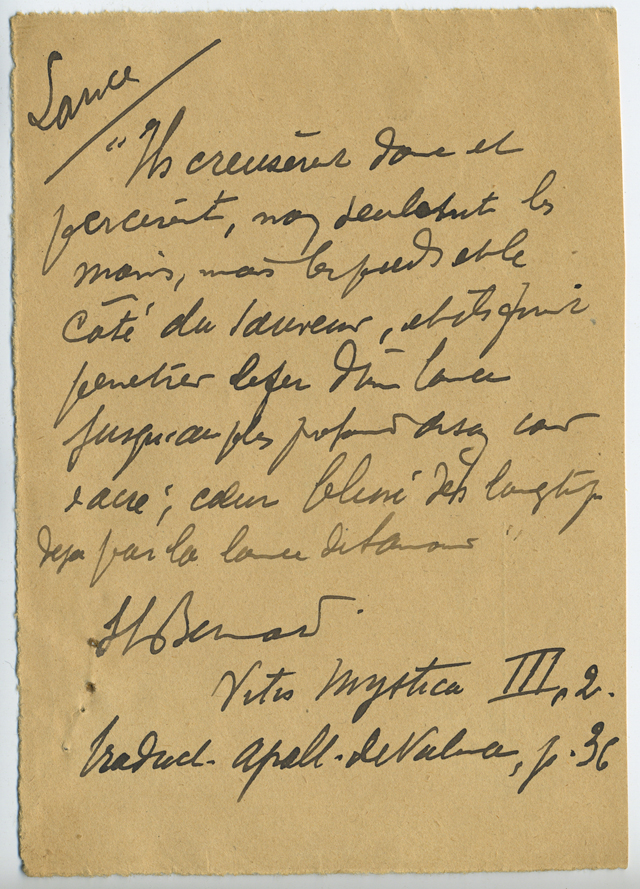 Lance
"Ils creusèrent donc et
percèrent, non seulement les
mains, mais les pieds et le
côté du Sauveur, et ils firent
penetrer le fer d'une lance
jusqu'au plus profond de son cœur
sacré; cœur blessé dès longtemps
deja par la lance de l'amour"
St Bernard.
Vitis Mystica III, 2.
traduct. Apoll. de Valence, p. 36